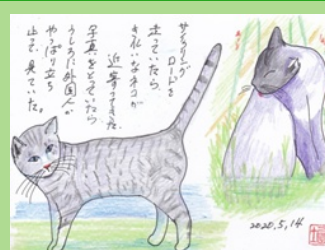 サイクリング
ロードを
走っていたら、
きれいなネコが
近寄ってきた。
写真をとっていたら
うしろに外国人が
やっぱり立ち
止って、見ていた。
2020.5.14.